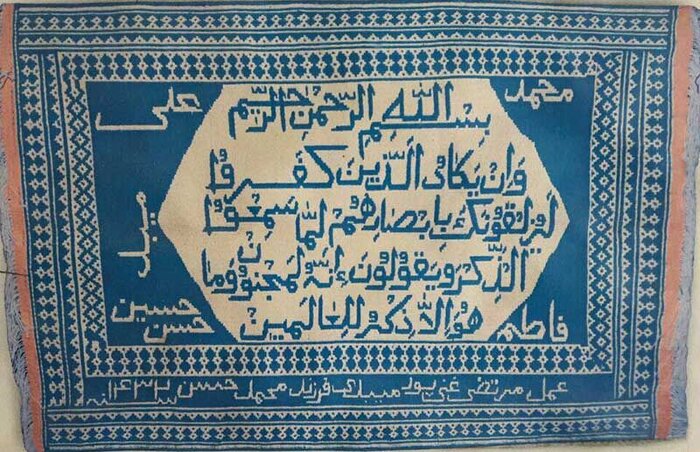 محمد
علی
بِسْمِ اللهِ الرَّحْمنِ الرَّحیمِ
وَاِنْ یَکادُ الَّذینَ کَفَرُوا
لَیُزْلِقُونَکَ بِاَبْصارِهِمْ لَمّا سَمِعُوا
الذِّکْرَ وَیَقُولُونَ اِنَّهُ لَمَجْنُونٌ وَما
هُوَ اِلّا ذِکْرٌ لِلْعالَمینَ
میبد
حسین
حسن
فاطمه
عمل مرتضی غنی پور میبدی فرزند محمد حسن